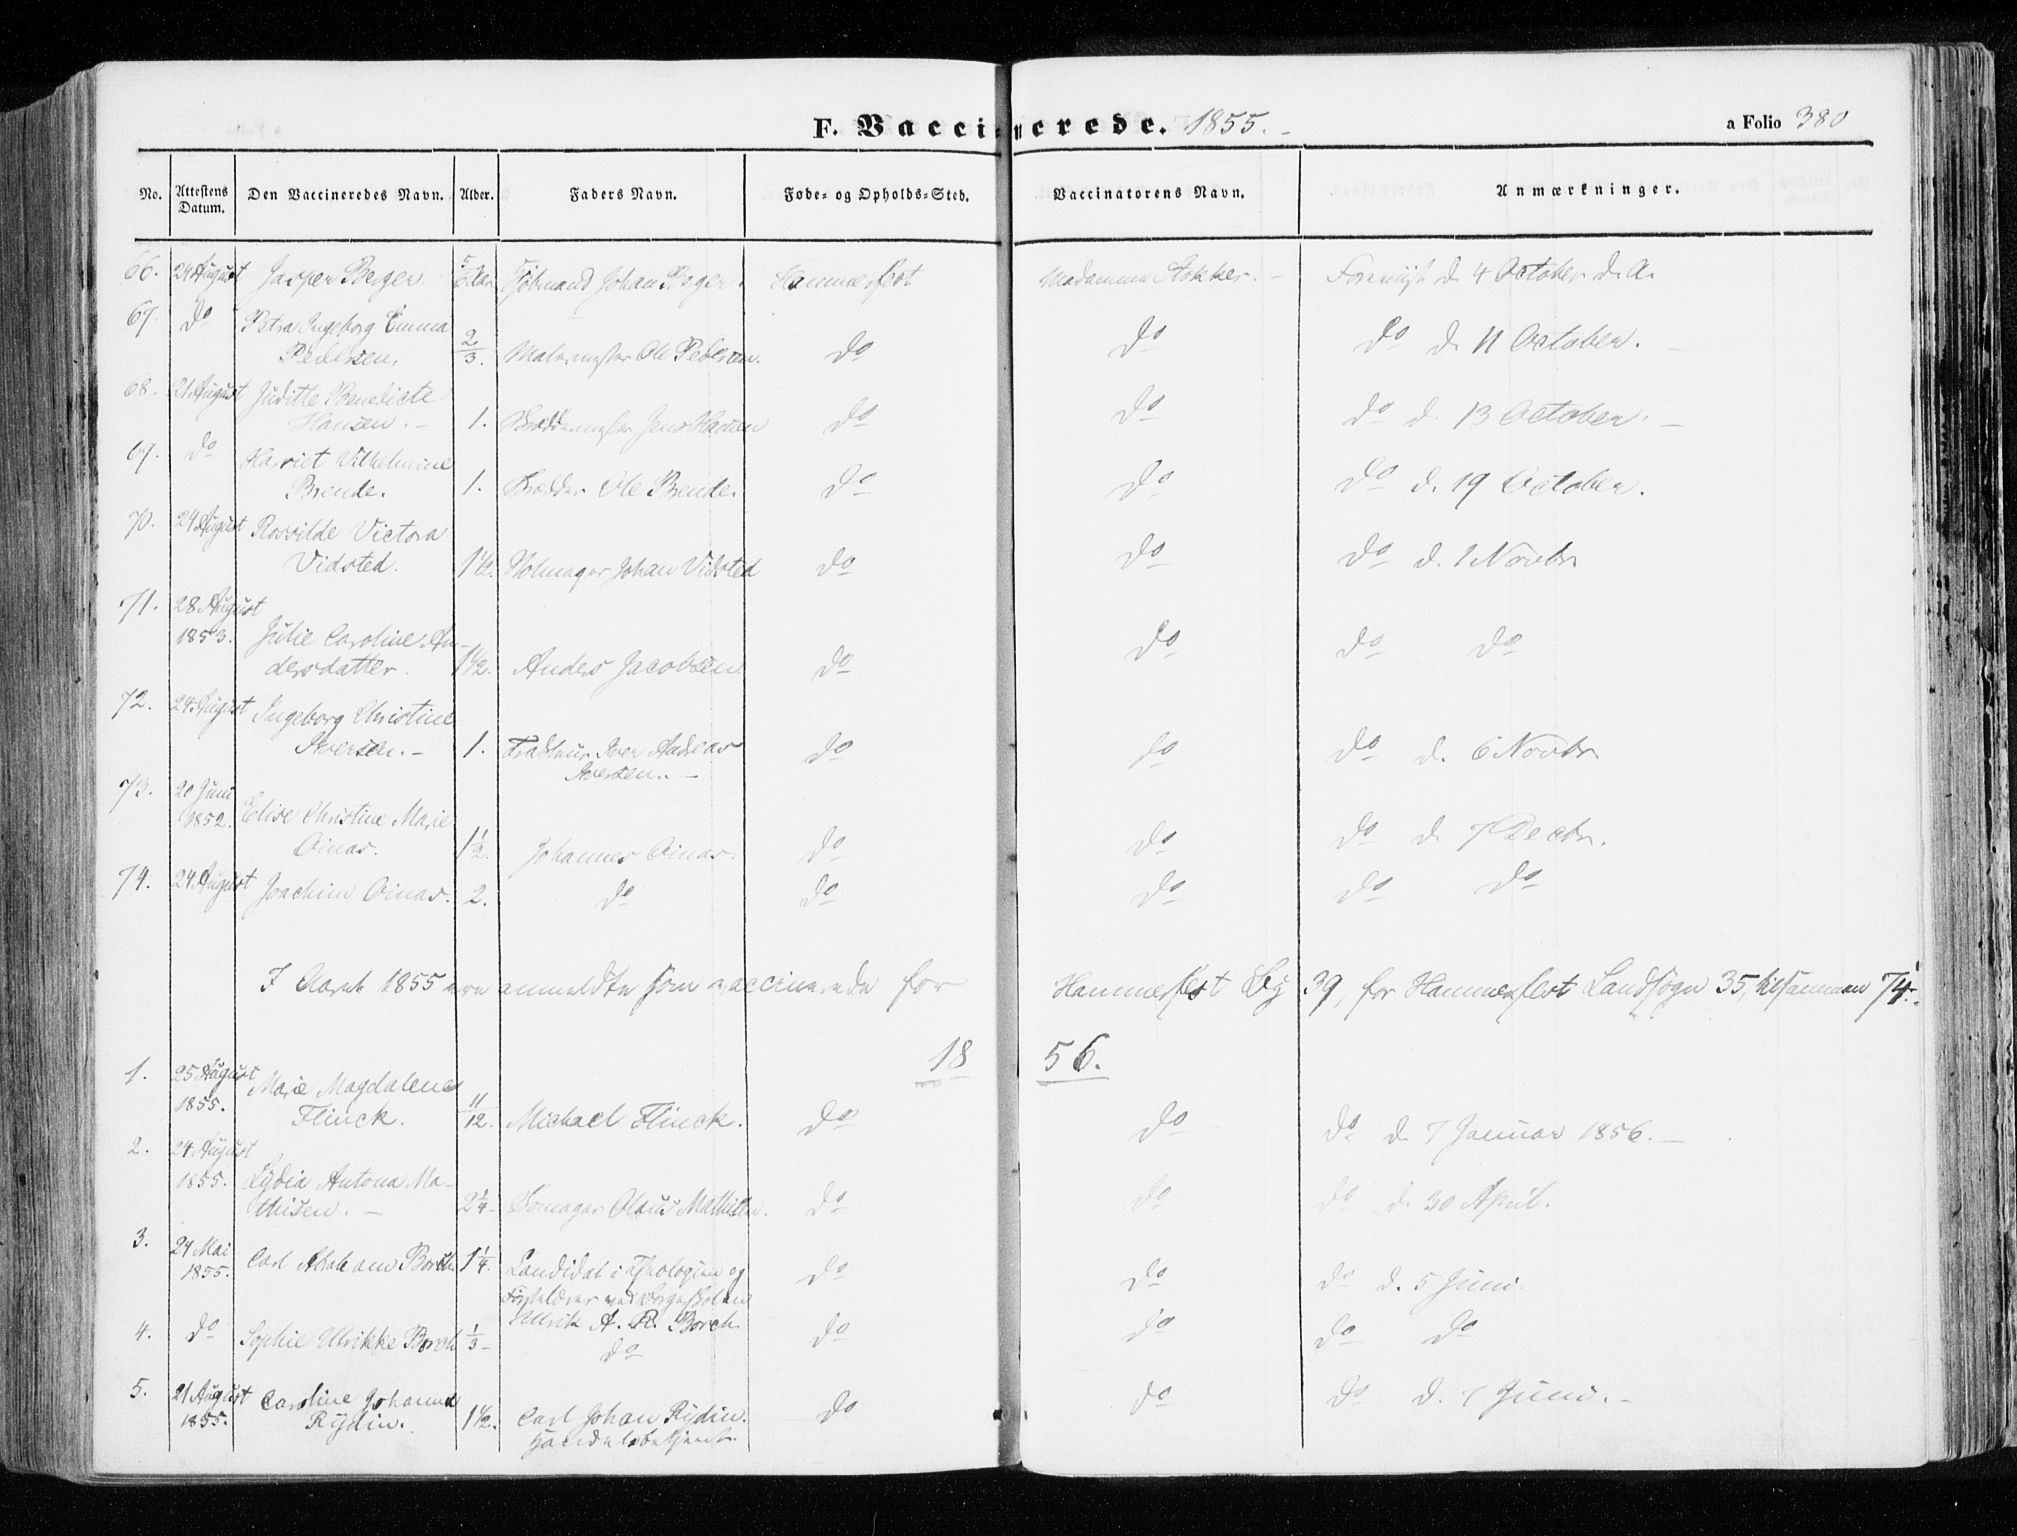 F. Vaccinerede. 1855. a Folio 380
No. Attestens Datum. Den Vaccineredes Navn. Alder. Faders Navn. Føde- og Opholds-Sted. Vaccinatorens Navn. Anmærkninger.
66. 24 August Jasper Berger Johan Berger Hammerfest Madamme Stokker. Foreviist d. 4 October d. A.
67. do Petra Ingeborg Emma
Pedersen. 2/3. Malermester Ole Pedersen. do do do d. 11 October.
68. 21 August Juditte Benedicte
Hansen. 1. Jens Hansen do do do d. 13 October.
69. do Harriet Vilhelmine
Brende. 1. Ole Brende. do do do d. 19 October.
70. 24 August Rosvilde Victora
Vidsted. 1 1/2. Johan Vidsted do do do d. 1 Novbr
71. 28 August
1853. Julie Caroline An-
dersdatter. 1 1/2. Anders Jacobsen do do do do
72. 24 August Ingeborg Christine
Iversen. 1. Iver Andreas
Iversen. do do do d. 6 Novbr
73. 20 Juni
1852. Elise Christine Marie
Oinas. 1 1/2. Johannes Oinas. do do do d. 7 Decbr.
74. 24 August Joachim Oinas. 2. do do do do do
I Aaret 1855 ere anmeldte som vaccinerede for Hammerfest By 39, for Hammerfest Landsogn 35, tilsammen 74.
1856.
1. 25 August
1855. Marie Magdalene
Flinck. 11/12. Michael Flinck. do do do d. 7 Januar 1856.
2. 24 August
1855. Lydia Antona Ma-
thisen. 2 1/4 Olaus Mathisen. do do do d. 30 April.
3. 24 Mai
1855. Carl Abraham Borch 1 1/4. Candidat i Theologien og
ved Borgerskolen
Ulrik A. R. Borch do do do d. 5 Juni.
4. do Sophie Ulrikke Borch 1/3 do do do do do
5. 21 August
1855. Caroline Johanna
Rydin. 1 1/2. Carl Johan Rydin.
Handelsbetjent. do do do d. 7 Juni.